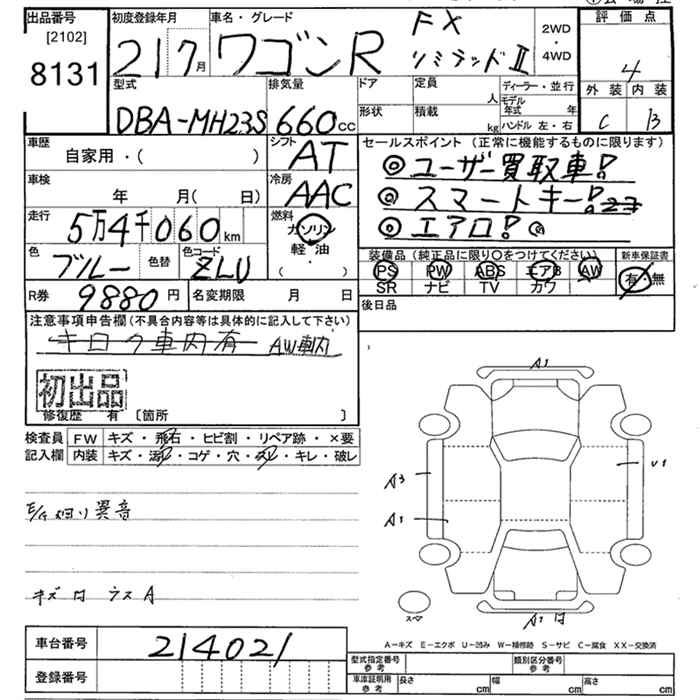 出品番号 初度登録年月 車名・グレード 評価点
[2102] 8131
21 7月 ワゴンR FX リミテッドⅡ 2WD・4WD 4
型式 排気量 ドア 定員 人 ディーラー・並行 外装 内装
DBA-MH23S 660cc 形状 積載 kg モデル年式 年 ハンドル 左・右 C B
車歴 自家用・( ) シフト AT
セールスポイント (正常に機能するものに限ります)
◎ユーザー買取車!
車検 年 月( 日) 冷房 AAC
◎スマートキー!
走行 5万4千060km 燃料 ガソリン・軽油・( )
◎エアロ!
色 ブルー 色替 色コード ZLU
装備品 (純正品に限り○をつけてください) 新車保証書
PS PW ABS エアB AW 有・無
SR ナビ TV カワ
R券 9880円 名変期限 月 日
後日品
注意事項申告欄(不具合内容等は具体的に記入して下さい)
AW車内
初出品
修復歴 有 [箇所 ]
検査員記入欄 FW キズ・飛石・ヒビ割・リペア跡・×要
内装 キズ・汚レ・コゲ・穴・スレ・キレ・破レ
A1
A3
U1
A1
E/G廻り異音
キズ内 ラスA
スペア
A1
車台番号 214021
A-キズ E-エクボ U-凹み W-補修跡 S-サビ C-腐食 XX-交換済
登録番号
型式指定番号 参考 類別区分番号 参考
車庫証明用 参考 長さ cm 幅 cm 高さ cm